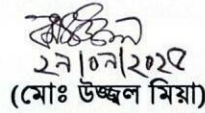 ২৯|০৯|২০২৫
(মোঃ উজ্জ্বল মিয়া)